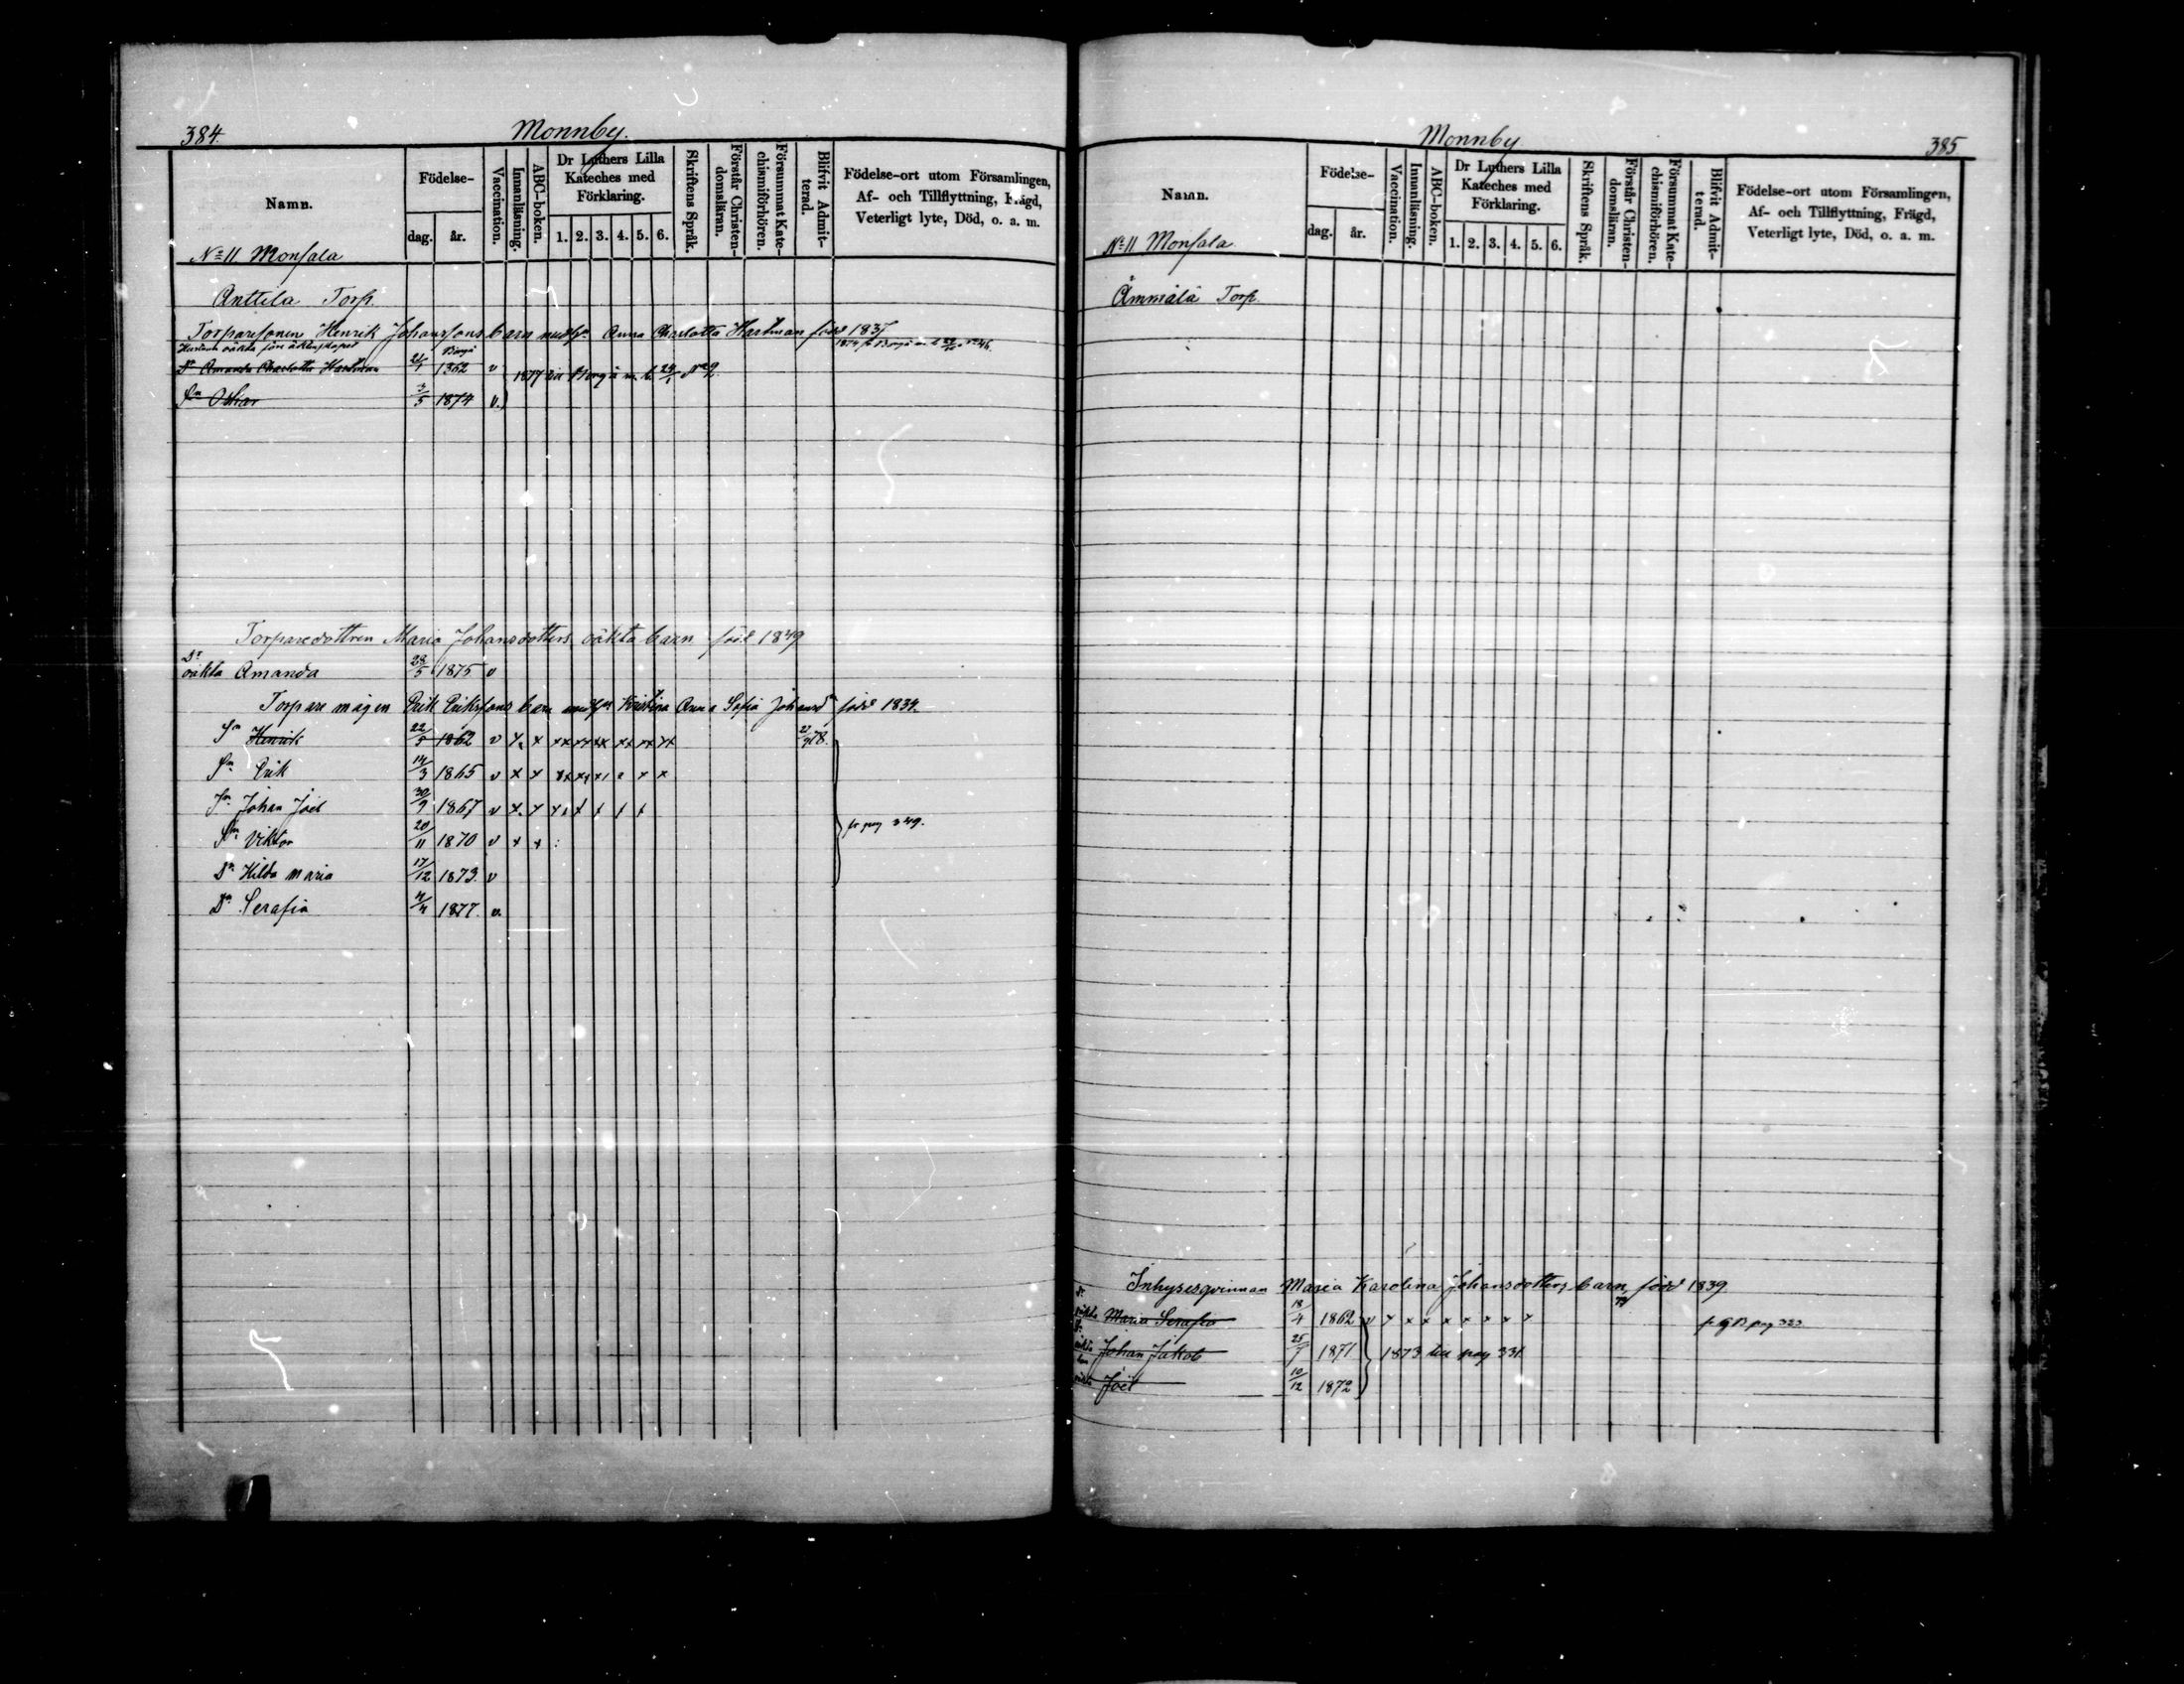 384.
Monnby.
Namn.
Födelse-
dag.
år.
Vaccination.
Innanläsning.
ABC-boken.
Dr Luthers Lilla
Kateches med
Förklaring.
1. 2. 3. 4. 5. 6.
Skriftens Språk.
Förstår Christen-
domsläran.
Försummat Kate-
chismiförhören.
Blifvit Admit-
terad.
Födelse-ort utom Församlingen,
Af- och Tillflyttning, Frägd,
Veterligt lyte, Död, o. a. m.
No 11 Monsala
Anttila Torp.
Torparesonen Henrik Johanssons barn med h. Anna Charlotta Hartman född 1837
Hustruns oäkta före äktenskapet
Borgå
Dr Amanda Charlotta Hartman 24/1 1862 v
1877 till Borgå m. b. 24/1 No 9.
Sn Oskar 3/5 1874 v.
Torparedottren Maria Johansdotters oäkta barn född 1849
Dr
oäkta Amanda 28/5 1875 v
Torpare mågen Erik Erikssons barn med h. Kristina Anna Sofia Johansdr född 1834.
Sn Henrik 22/5 1862 v x x xx xx xx xx xx xx 78.
Sn Erik 14/3 1865 v x x
Sn Johan Joel 30/9 1867 v x x
fr pag 349.
Sn Viktor 20/11 1870 v x x
Dr Hilda Maria 17/12 1873. v
Dr Serafia 4/4 1877. v.
Monnby
385
Namn.
Födelse-
dag.
år.
Vaccination.
Innanläsning.
ABC-boken.
Dr Luthers Lilla
Kateches med
Förklaring.
1. 2. 3. 4. 5. 6.
Skriftens Språk.
Förstår Christen-
domsläran.
Försummat Kate-
chismiförhören.
Blifvit Admit-
terad.
Födelse-ort utom Församlingen,
Af- och Tillflyttning, Frägd,
Veterligt lyte, Död, o. a. m.
No 11 Monsala
Ämmälä Torp.
Inhysesqvinnan Maria Karolina Johansdotters barn, född 1839
Dr
oäkta Maria Serafia 18/4 1862 v x x x x x x x x
oäkta Johan Jakob 25/7 1871 1873 till pag 331.
oäkta Joel 10/12 1872